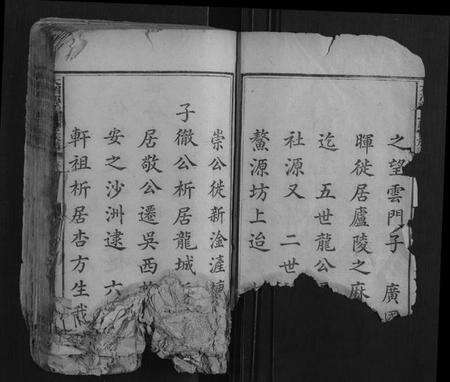 之望雲門子 廣
暉徙居廬陵之麻
迄 五世龍公
社源又 二世
鰲源坊上迨
崇公徙新淦漄
子徹公析居龍城
居敬公遷吳西
安之沙洲逮 六
軒祖析居杏方生戒